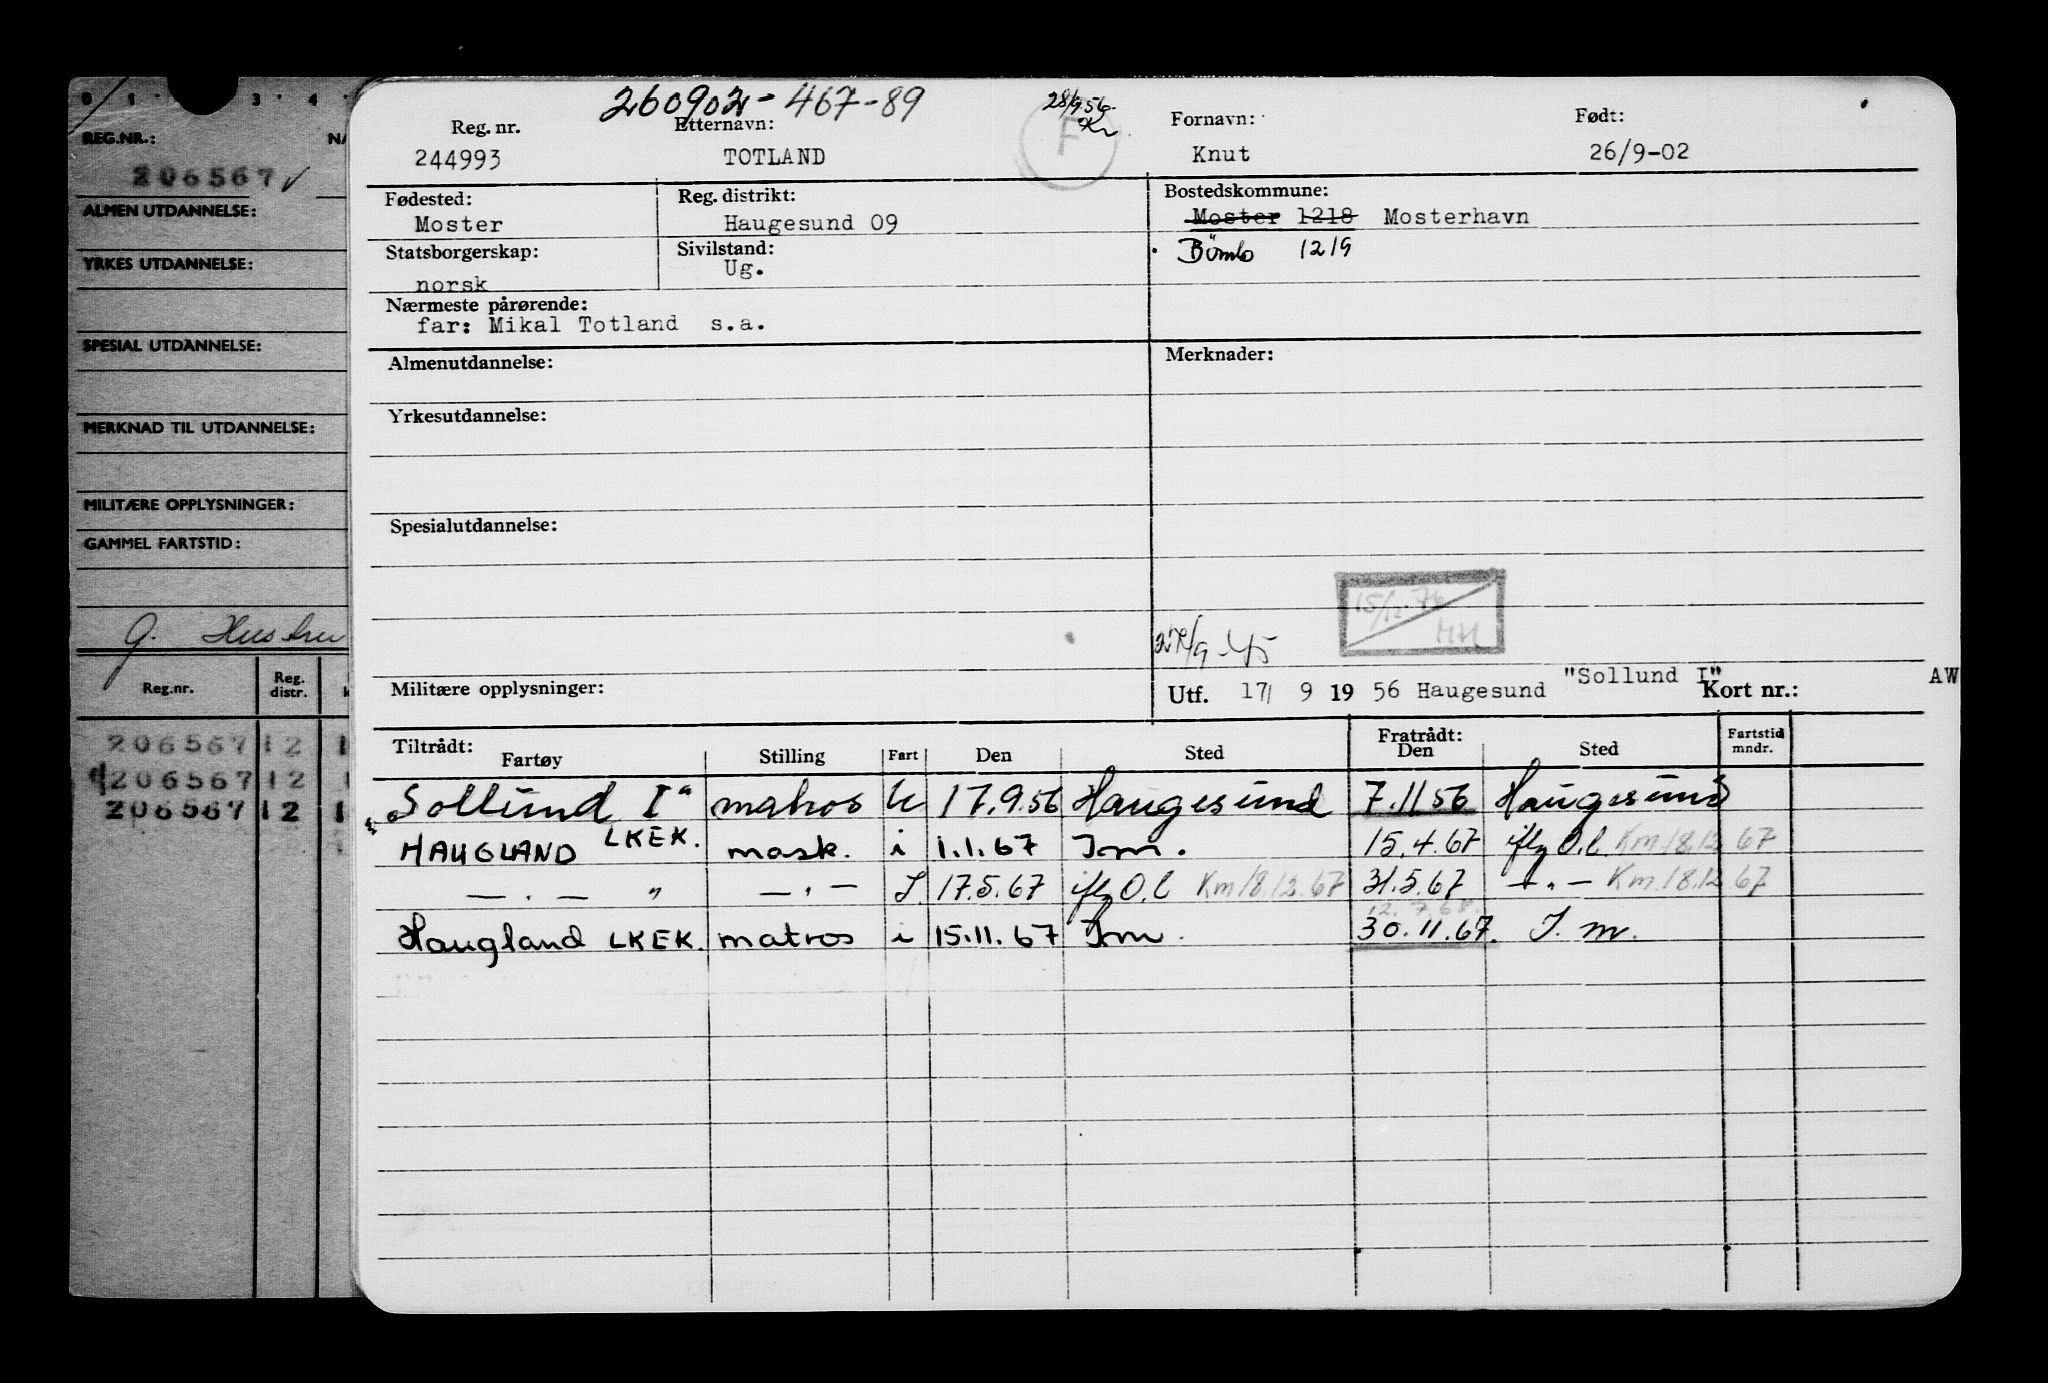 0 1 3 4
REG.NR.: NA
206567 ✓
ALMEN UTDANNELSE:
YRKES UTDANNELSE:
SPESIAL UTDANNELSE:
MERKNAD TIL UTDANNELSE:
MILITÆRE OPPLYSNINGER:
GAMMEL FARTSTID:
G.
Reg.nr. Reg. distr.
206567 12 1
206567 12 1
206567 12 1
260902- 467-89
28/9 56.
Kr
F
Reg. nr. Etternavn: Fornavn: Født:
244993 TOTLAND Knut 26/9-02
Fødested: Reg. distrikt: Bostedskommune:
Moster Haugesund 09 Moster 1218 Mosterhavn
Statsborgerskap: Sivilstand: Bömlo 1219
norsk Ug.
Nærmeste pårørende:
far: Mikal Totland s.a.
Almenutdannelse: Merknader:
Yrkesutdannelse:
Spesialutdannelse:
15/12.76
MH
Militære opplysninger:
"Sollund I" AW
Utf. 17/ 9 19 56 Haugesund Kort nr.:
Tiltrådt: Fratrådt: Fartstid mndr.
Fartøy Stilling Fart Den Sted Den Sted
"Sollund I" matros U 17.9.56 Haugesund 7.11 56 Haugesund
HAUGLAND LKEK. mask. i 1.1.67 Im. 15.4.67 iflg O.l. Km.18.12 67
— . — " — . — I. 17.5.67 iflg O.l Km 18.12.67 31.5.67 — " — Km.18.12 67
12. 7 68.
Haugland LKEK. matros i 15.11.67 Im. 30.11.67. I. m.